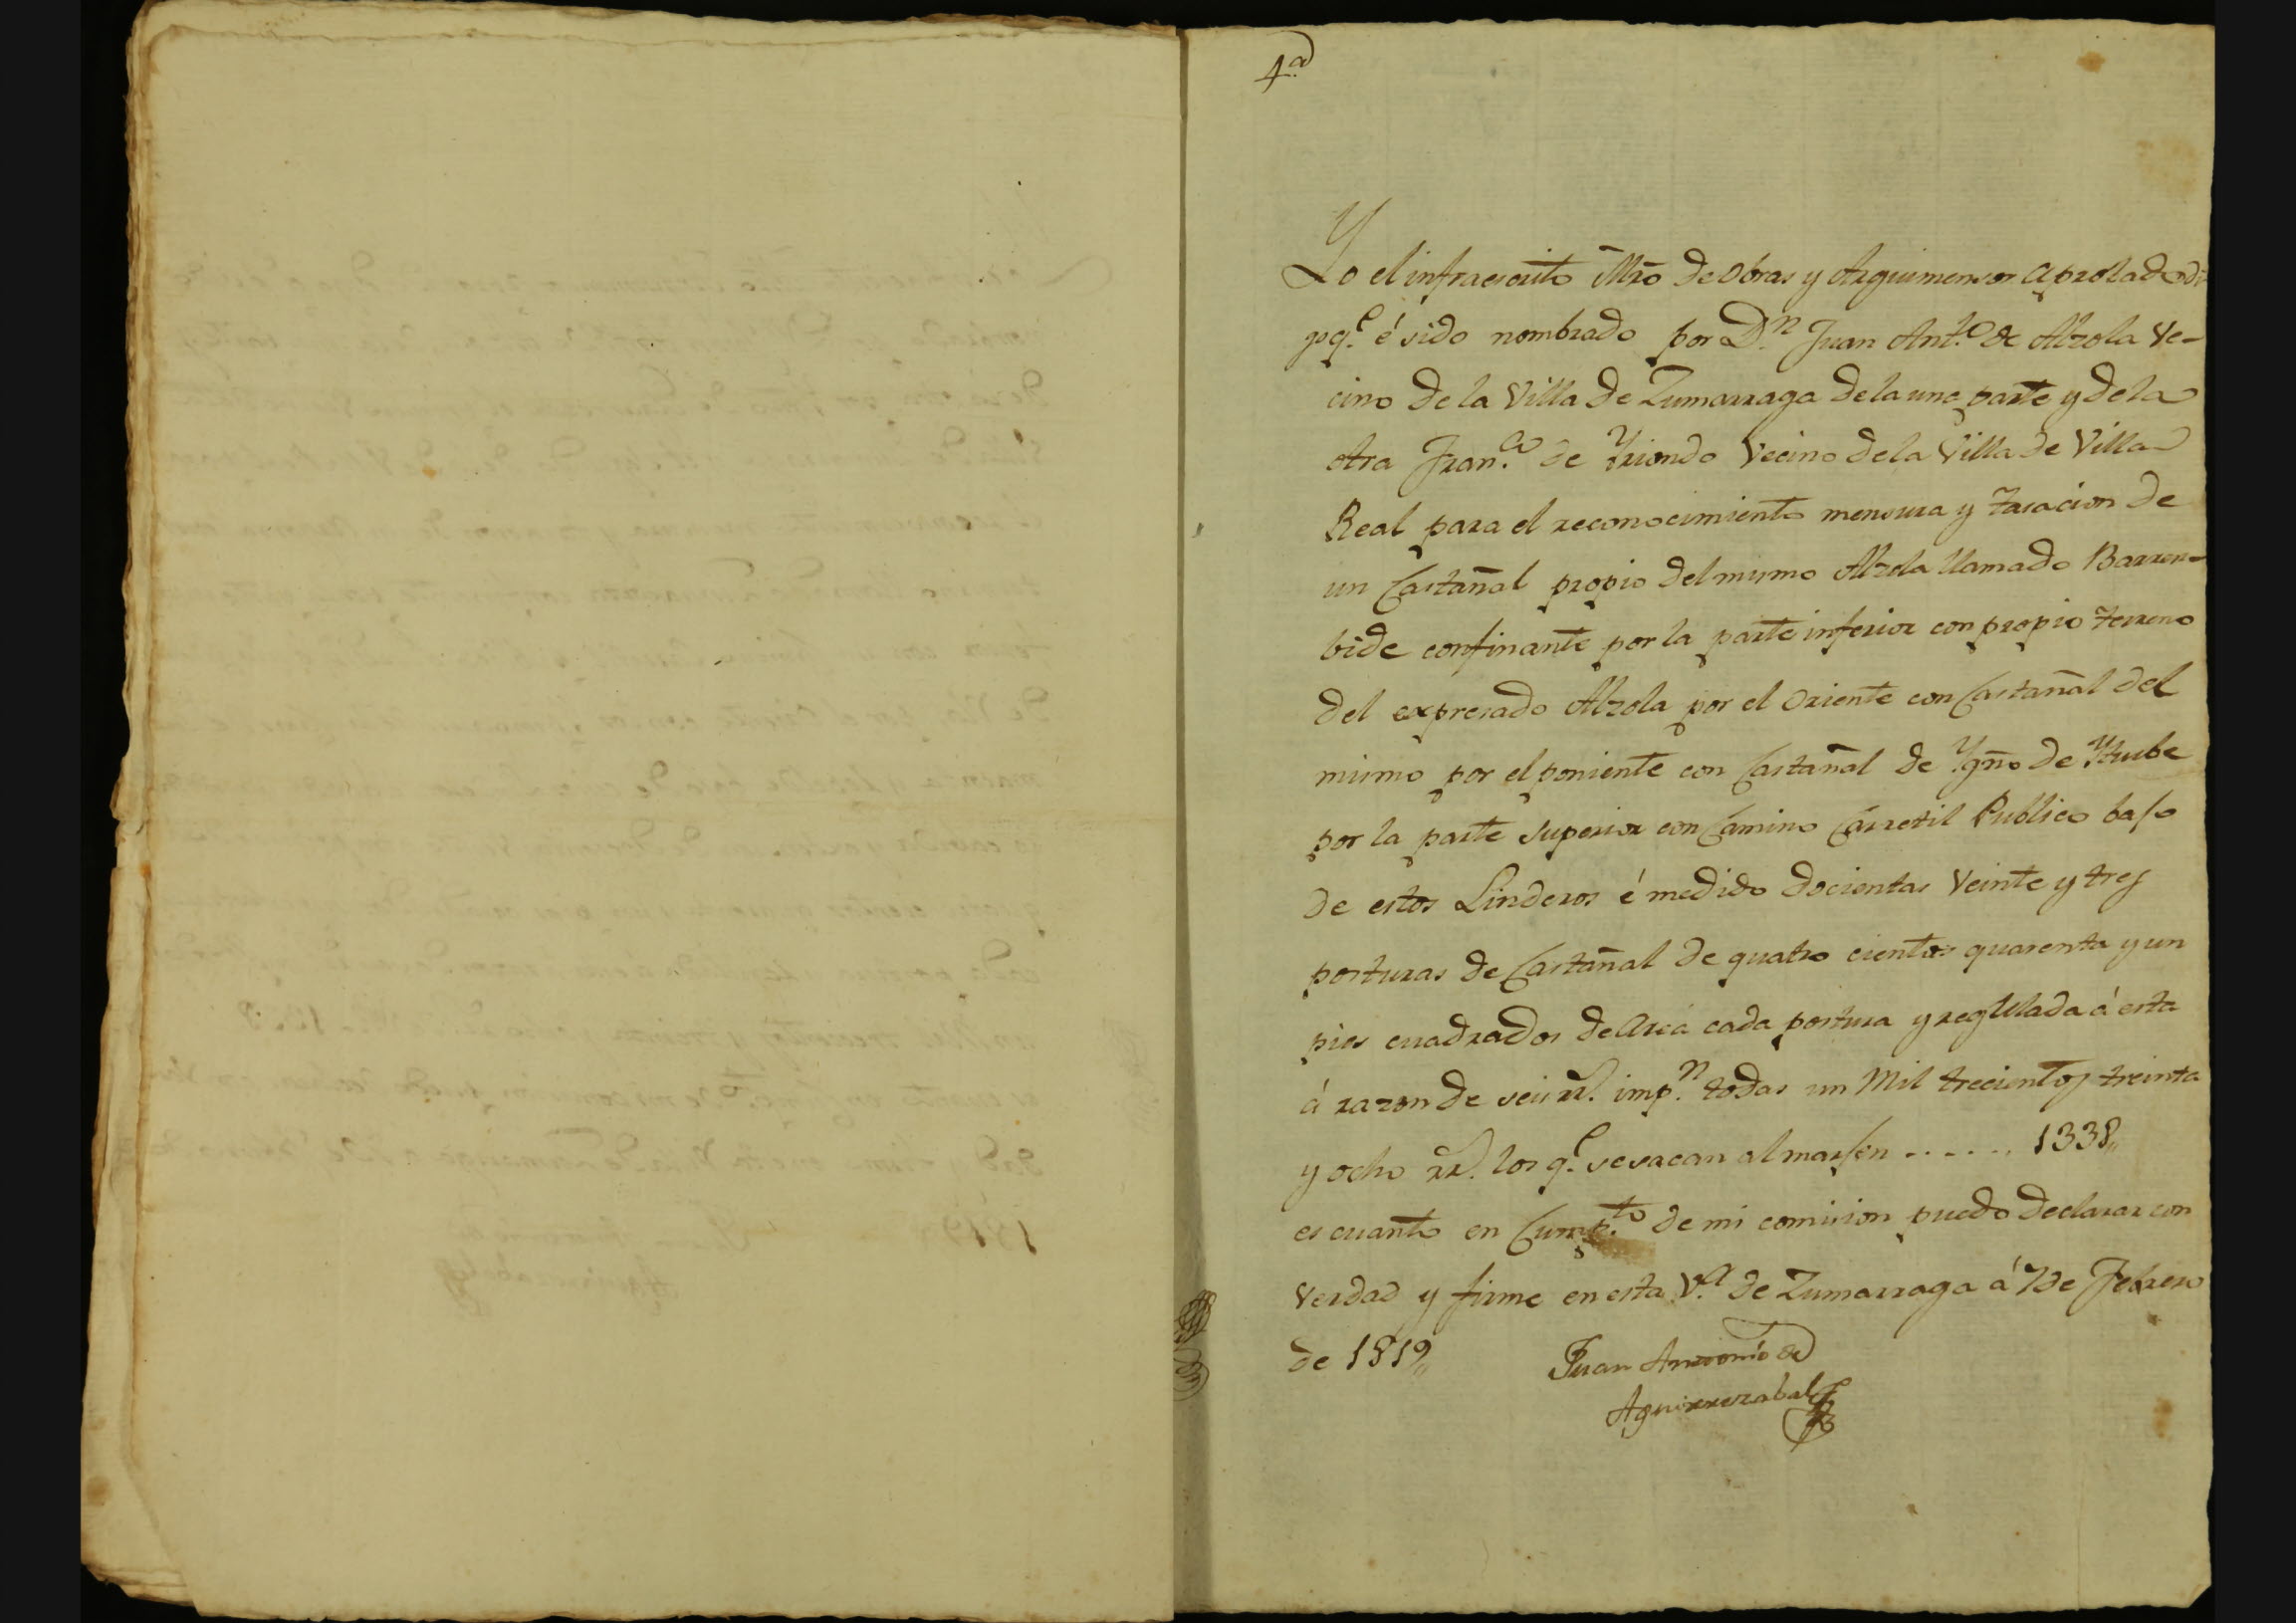 4.ª
Yo el infraescrito Mro de Obras y Arguimensor aprobado di
go q.e é sido nombrado por D.n Juan Ant.o de Alzola Ve-
cino de la Villa de Zumarraga de la una parte y de la
otra Fran.ca de Yriondo Vecino de la Villa de Villa
Real para el reconocimiento mensura y tasacion de
un Castañal propio del mismo Alzola llamado Barren-
bide confinante por la parte inferior con propio terreno
del expresado Alzola por el Oriente con Castañal del
mismo por el poniente con Castañal de Ygño de Yturbe
por la parte Superior con Camino Carretil Publico bajo
de estos Linderos é medido docientas Veinte y tres
posturas de Castañal de quatro cientos quarenta y un
pies cuadrados de Area cada postura y regulada á esta
á razon de seis rr.s imp.n todas un Mil trecientos treinta
y ocho rr.s los q.e se sacan al marjen ...... 1338,,
es cuanto en Cump.to de mi comision puedo declarar con
Verdad y firme en esta V.a de Zumarraga á 7 de Febrero
de 1819,,
Juan Antonio de
Aguirrezabal